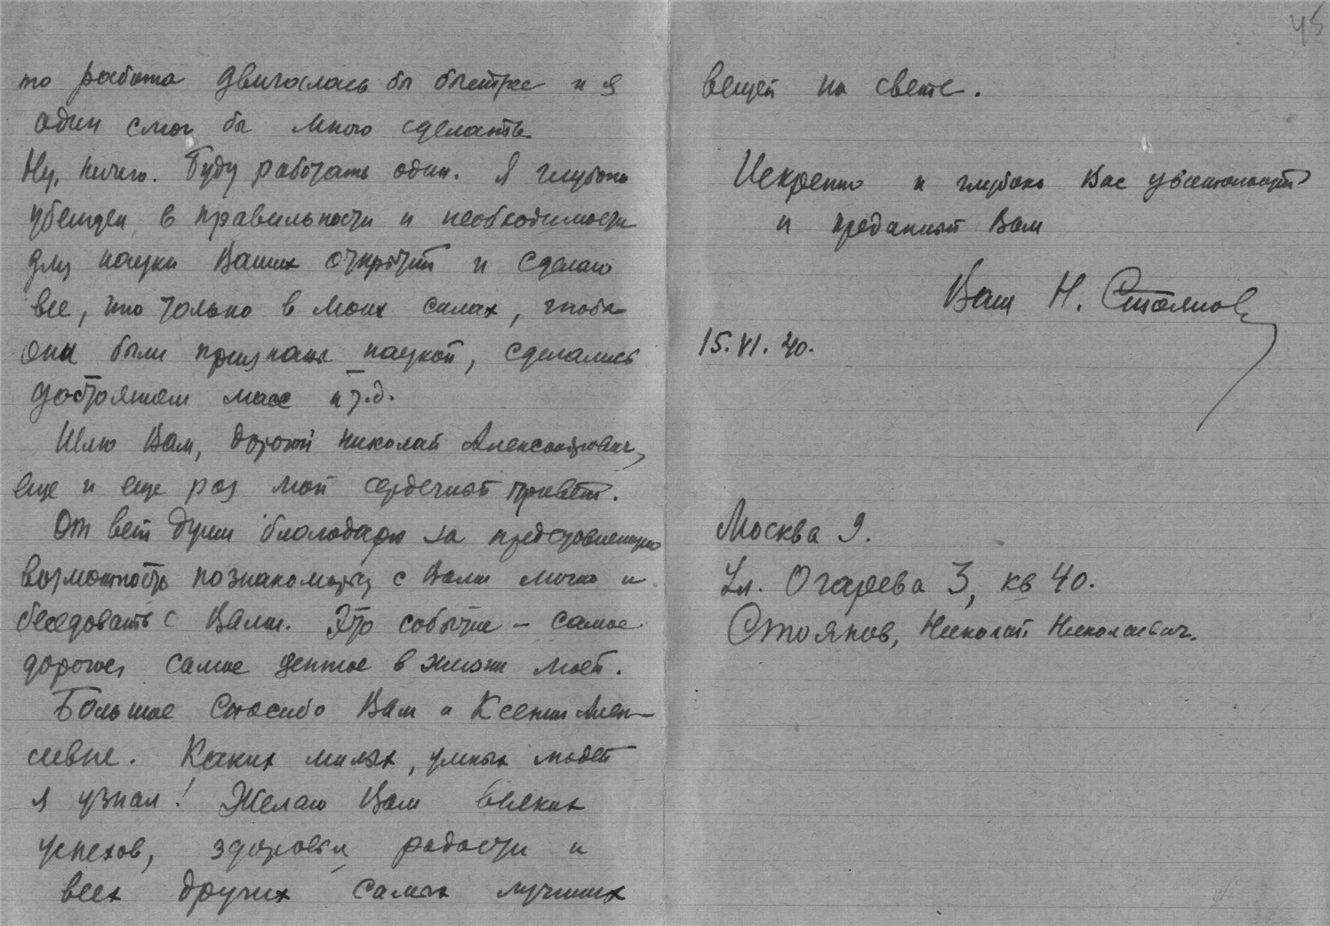 то работа двигалась бы быстрее и я
один смог бы много сделать
Ну, ничего. Буду работать один. Я глубоко
убежден в правильности и необходимости
для науки Ваших открытий и сделаю
все, что только в моих силах, чтобы
они были признаны наукой, сделались
достоянием масс и т.д.
Шлю Вам, дорогой Николай Александрович,
еще и еще раз мой сердечный привет.
От всей души благодарю за предоставленную
возможность познакомиться с Вами лично и
беседовать с Вами. Это событие – самое
дорогое, самое ценное в жизни моей.
Большое спасибо Вам и Ксении Алек-
сеевне. Каких милых, умных людей
я узнал! Желаю Вам всяких
успехов, здоровья, радости и
всех других самых лучших
45
вещей на свете.
Искренно и глубоко Вас уважающий
и преданный Вам
Ваш Н. Стоянов
15.VI.40.
Москва 9.
Ул. Огарева 3, кв 40.
Стоянов, Николай Николаевич.